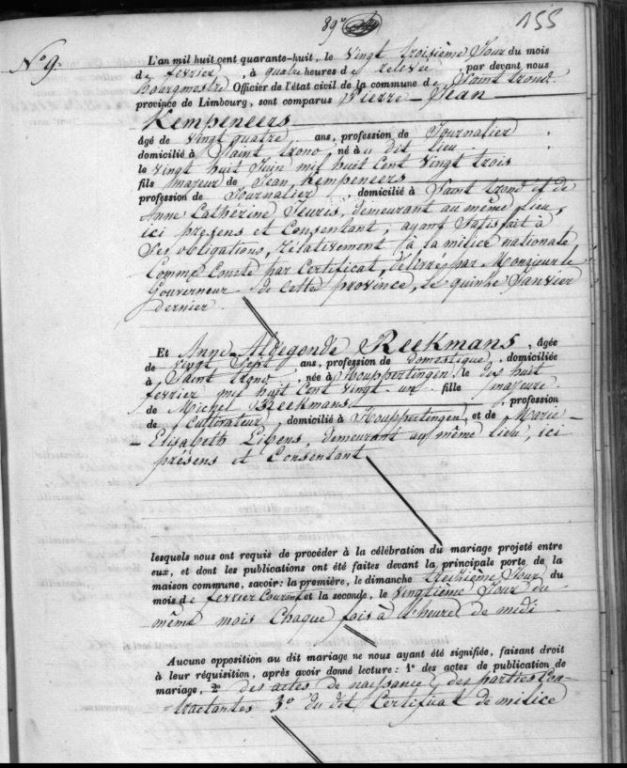 89e
155
N° 9.
L'an mil huit cent quarante-huit, le Vingt troisième Jour du mois
de fevrier, à quatre heures de relevée, par devant nous
bourgmestre Officier de l'état civil de la commune de Saint trond.
province de Limbourg, sont comparus Pierre - Jean
Kempeneers
âgé de vingt quatre ans, profession de Journalier
domicilié à Saint trond, né au dit lieu
le vingt huit Juin mil huit Cent vingt trois
fils majeur de Jean Kempeneers
profession de Journalier, domicilié à Saint trond et de
Anne Catherine Jeuris, demeurant au même lieu,
ici presens et Consentant, ayant satisfait à
Ses obligations, relativement à la milice nationale
Comme Conste par Certificat, délivré par Monsieur le
Gouverneur de Cette province, le quinze Janvier
dernier
Et Anne Aldegonde Reekmans, âgée
de vingt Sept ans, profession de domestique, domiciliée
à Saint trond, née à Houppertingen le dix huit
fevrier mil huit Cent vingt un fille majeure
de Michel Reekmans, profession
de Cultivateur, domicilié à Houppertingen, et de Marie
- Elisabeth Libens, demeurant au même lieu, ici
présens et Consentant
lesquels nous ont requis de procéder à la célébration du mariage projeté entre
eux, et dont les publications ont été faites devant la principale porte de la
maison commune, savoir: la première, le dimanche treizième Jour du
mois de fevrier Courant et la seconde, le vingtième Jour du
même mois Chaque fois à l'heure de midi
Aucune opposition au dit mariage ne nous ayant été signifiée, faisant droit
à leur réquisition, après avoir donné lecture: 1° des actes de publication de
mariage, 2° des actes de naissance des parties Con-
tractantes 3° du dit Certificat de milice